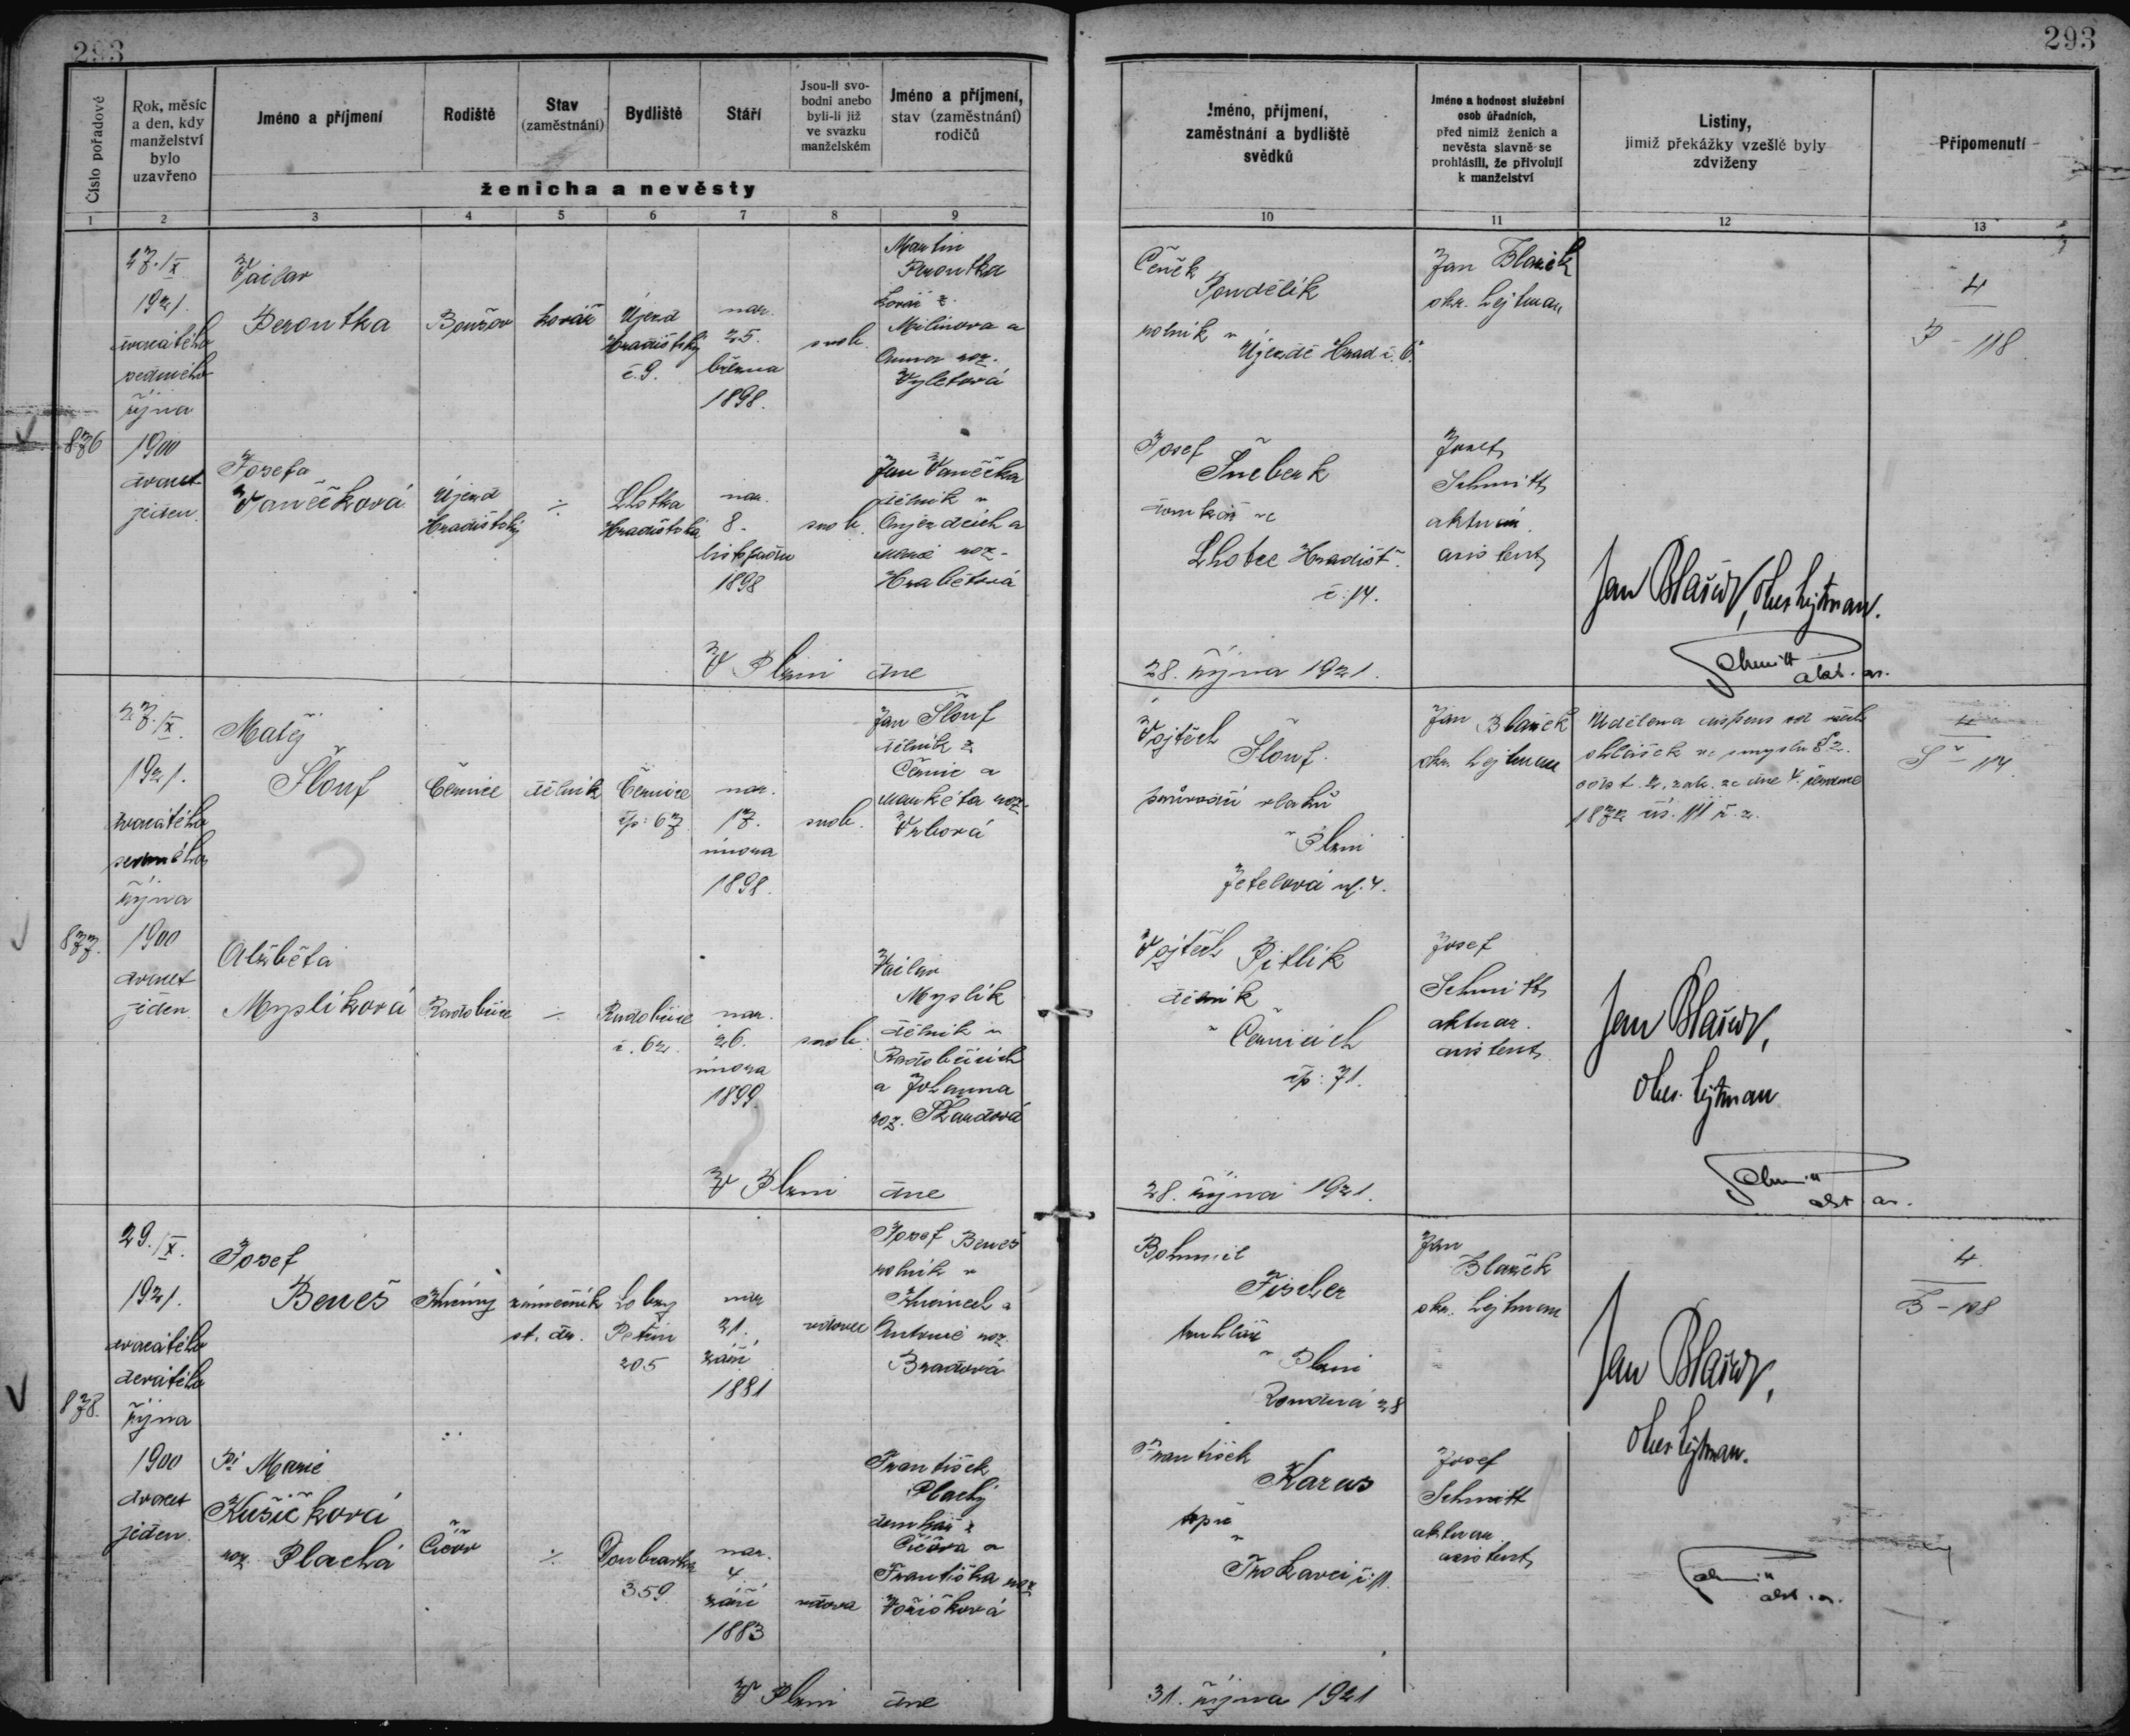 293
293
Číslo pořadové
Rok, měsíc
a den, kdy
manželství
bylo
uzavřeno
Jméno a příjmení
Rodiště
Stav
(zaměstnání)
Bydliště
Stáří
Jsou-li svo-
bodni anebo
byli-li již
ve svazku
manželském
Jméno a příjmení,
stav (zaměstnání)
rodičů
ženicha a nevěsty
Jméno, příjmení,
zaměstnání a bydliště
svědků
Jméno a hodnost služební
osob úřadních,
před nimiž ženich a
nevěsta slavně se
prohlásili, že přivolují
k manželství
Listiny,
jimiž překážky vzešlé byly
zdviženy
Připomenutí
1 2 3 4 5 6 7 8 9 10 11 12 13
876
27./X.
1921.
dvacátého
sedmého
října
1900
dvacet
jeden.
Václav
Peroutka
kovář
Újezd
Hradišťský
č. 9.
nar.
25.
března
1898.
svob.
Martin
Peroutka
kovář z
Milínova a
Anna roz.
Výletová
Čeněk
Pondělík
rolník v
Újezdě Hrad. č. 6.
Jan Blažek
okr. hejtman
4
P - 118
Josefa
Vaněčková
Újezd
Hradišťský
÷
Lhotka
Hradišťská
nar.
8.
listopadu
1898
svob.
Jan Vaněčka
dělník v
Újezdcích a
Marie roz.
Hrabětová
Josef
Šneberk
domkář ve
Lhotce Hradišť.
č. 14.
Josef
Schmitt
aktuar.
asistent
Jan Blažek, okres. hejtman.
Schmitt
akt. as.
V Plzni dne 28. října 1921.
877.
27./X.
1921.
dvacátého
sedmého
října
1900
dvacet
jeden
Matěj
Šlouf
Černice
dělník
Černice
čp: 67
nar.
17.
února
1898.
svob.
Jan Šlouf
dělník z
Černic a
Markéta roz.
Vrbová
Vojtěch
Šlouf.
průvodčí vlaků
v Plzni
Jetelová ul. 4.
Jan Blažek
okr. hejtman
Udělena dispens od všech
ohlášek ve smyslu § 2.
odst. 2. zák. ze dne 4. července
1872 čís. 111 ř. z.
4
Š - 114
Alžběta
Myslíková
Radobčice
÷
Radobčice
č. 62.
nar.
26.
února
1899.
svob.
Václav
Myslík
dělník v
Radobčicích
a Johanna
roz. Škardová
Vojtěch Pitlík
dělník
v Černicích
čp: 71.
Josef
Schmitt
aktuar.
asistent
Jan Blažek,
okres. hejtman
Schmitt
akt. as.
V Plzni dne 28. října 1921.
878.
29./X.
1921.
dvacátého
devátého
října
1900
dvacet
jeden.
Josef
Beneš
zámečník
st. dr.
Lobzy
Petřín
205
nar
21.
září
1881
vdovec
Josef Beneš
rolník v
Antonie roz.
Bradová
Bohumil
Fischer
truhlář
v Plzni
Koudlová 28
Jan
Blažek
okr. hejtman
4.
B - 108
Pí Marie
Kušičková
roz. Plachá
Čičov
÷
Doubravka
359.
nar.
4.
září
1883
vdova
František
Plachý
domkář z
Čičova a
Františka roz
Voříšková
František
Karas
topič
v
Trokavci č. 11.
Josef
Schmitt
aktuar.
asistent
Jan Blažek,
okres. hejtman.
Schmitt
akt. as.
V Plzni dne 31. října 1921